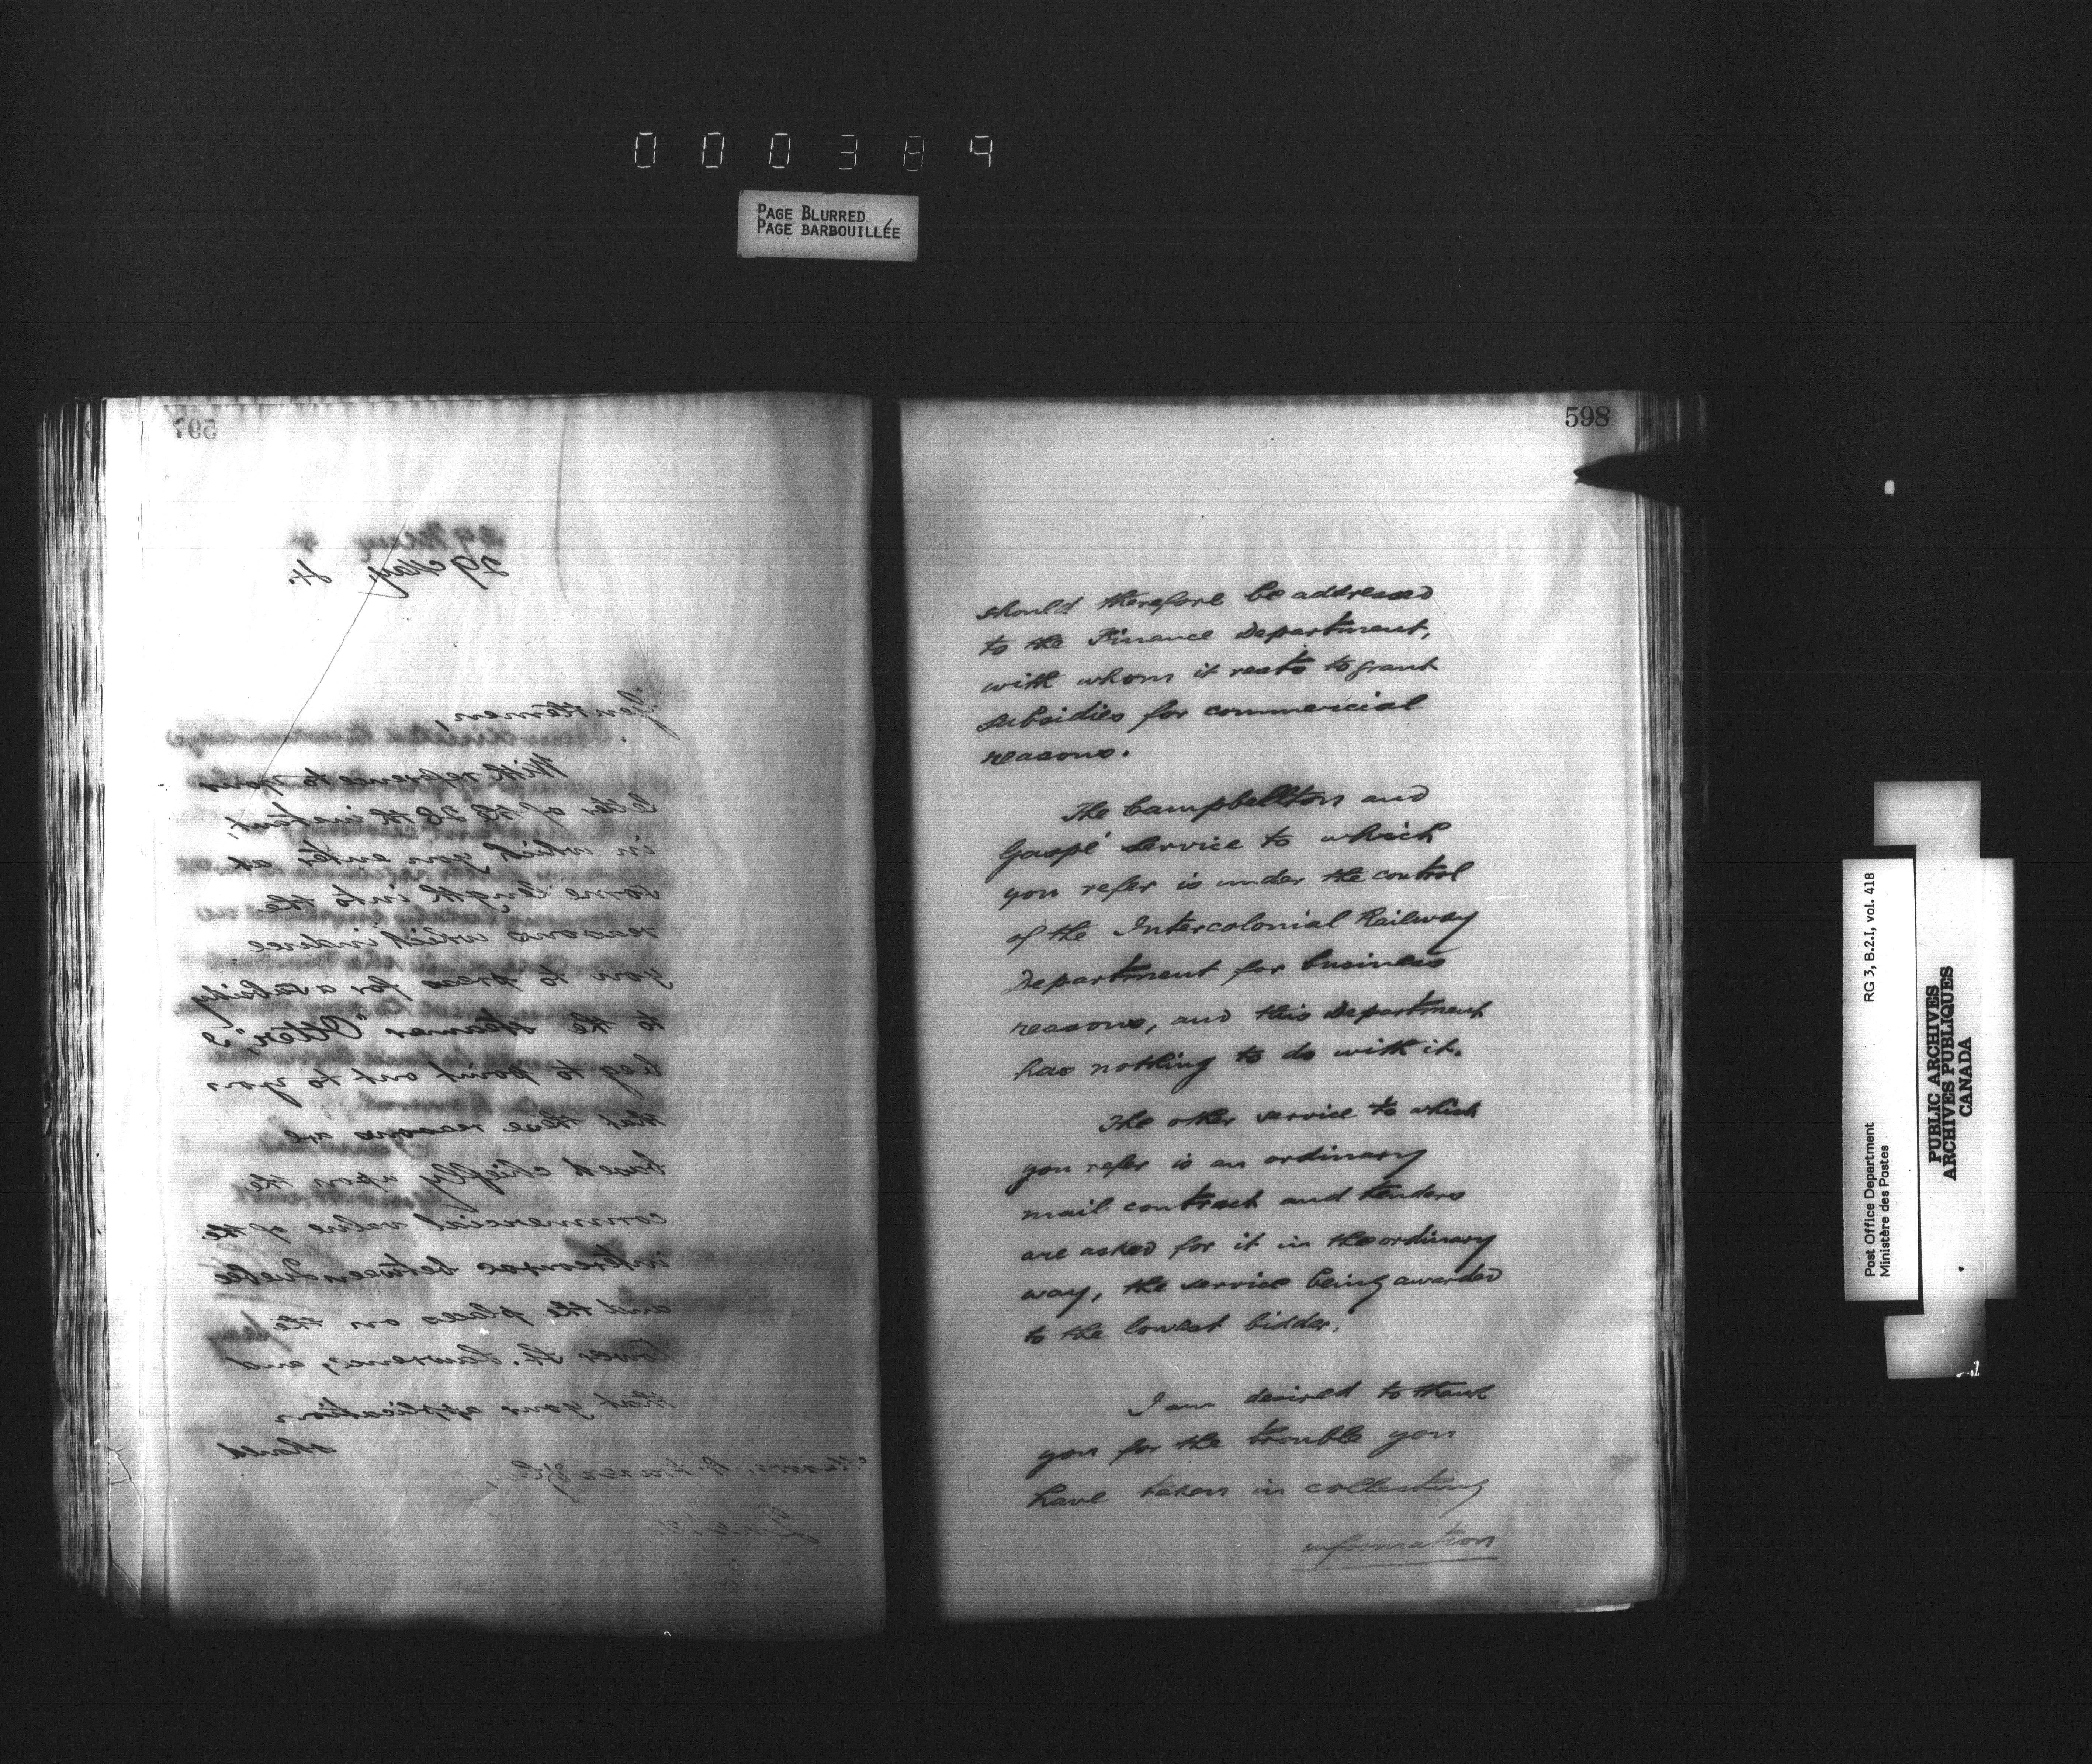 000389
PAGE BLURRED
PAGE BARBOUILLÉE
597
29 May, 4.
Gentlemen,
With reference to your
letter of the 28th instant,
in which you enter at
some length into the
reasons which induce
you to press for a subsidy
to the steamer "Otter", I
beg to point out to you
that these reasons are
based chiefly upon the
commercial value of the
intercourse between Quebec
and the places on the
Lower St. Lawrence, and
that your application
should
Messrs. &Co.,
598
should therefore be addressed
to the Finance Department,
with whom it rests to grant
subsidies for commercial
reasons.
The Campbellton and
Gaspé service to which
you refer is under the control
of the Intercolonial Railway
Department for business
reasons, and this Department
has nothing to do with it.
The other service to which
you refer is an ordinary
mail contract and tenders
are asked for it in the ordinary
way, the service being awarded
to the lowest bidder.
I am desired to thank
you for the trouble you
have taken in collecting
information
Post Office Department
Ministère des Postes
RG 3, B.2.I, vol. 418
PUBLIC ARCHIVES
ARCHIVES PUBLIQUES
CANADA